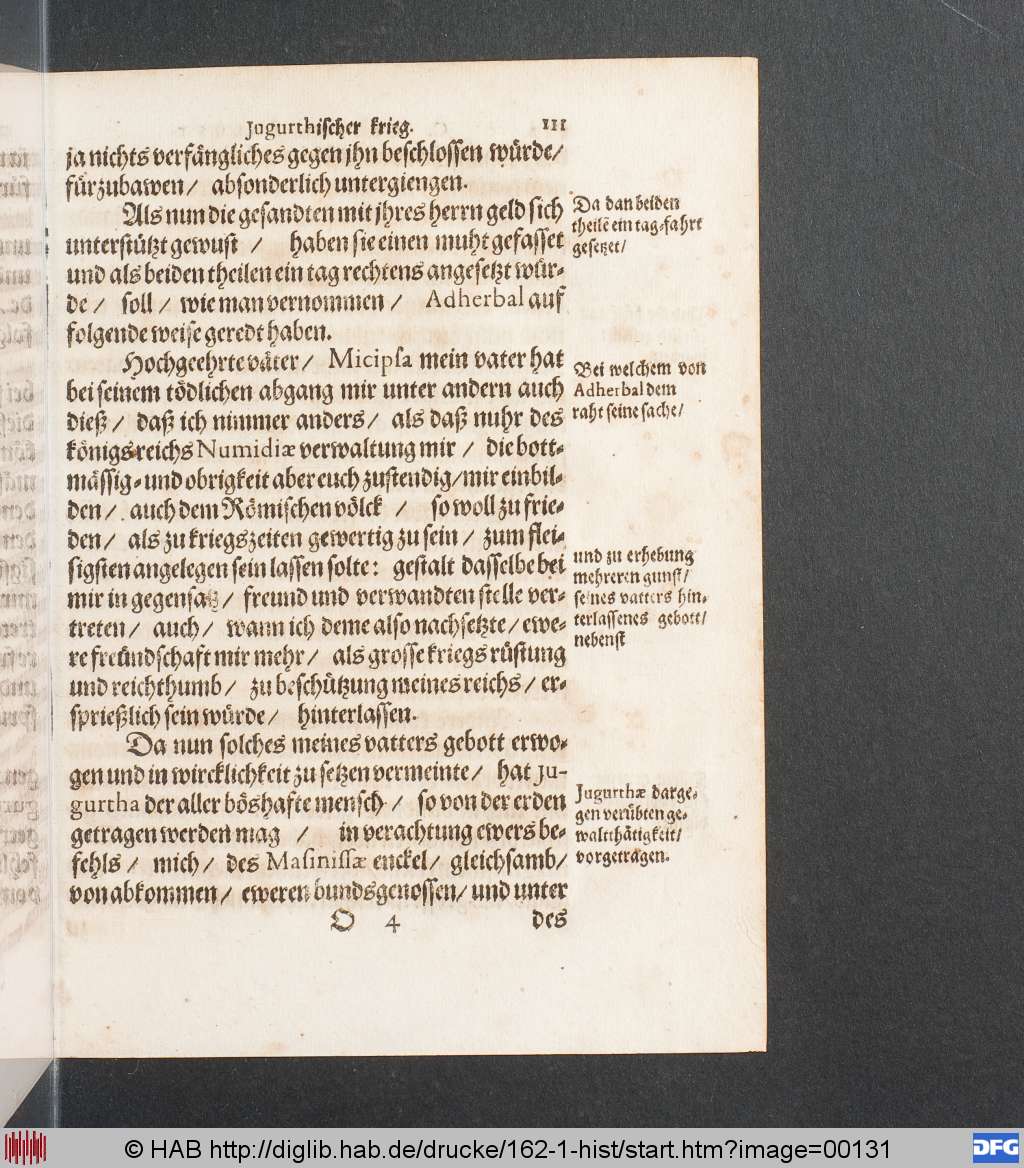 Jugurthischer krieg. 111
ja nichts verfängliches gegen jhn beschlossen würde/
fürzubawen / absonderlich untergiengen.
Als nun die gesandten mit jhres herrn geld sich
unterstützt gewust / haben sie einen muht gefasset
und als beiden theilen ein tag rechtens angesetzt wür-
de / soll / wie man vernommen / Adherbal auf
folgende weise geredt haben.
Hochgeehrte väter/ Micipsa mein vater hat
bei seinem tödlichen abgang mir unter andern auch
dieß / daß ich nimmer anders / als daß nuhr des
königs-reichs Numidiæ verwaltung mir / die bott-
mässig- und obrigkeit aber euch zustendig/mir einbil-
den / auch dem Römischen völck / so woll zu frie-
den / als zu kriegszeiten gewertig zu sein / zum flei-
sigsten angelegen sein lassen solte: gestalt dasselbe bei
mir in gegensatz / freund und verwandten stelle ver-
treten / auch / wann ich deme also nachsetzte / ewe-
re freündschaft mir mehr / als grosse kriegs rüstung
und reichthumb / zu beschützung meines reichs / er-
sprießlich sein würde / hinterlassen.
Da nun solches meines vatters gebott erwo-
gen und in wircklichkeit zu setzen vermeinte / hat Ju-
gurtha der aller böshafte mensch / so von der erden
getragen werden mag / in verachtung ewers be-
fehls / mich / des Masinissæ enckel / gleichsamb /
von abkommen / eweren bundsgenossen/ und unter
O 4 des
Da dan beiden
theilē ein tag-fahrt
gesetzet/
Bei welchem von
Adherbal dem
raht seine sache/
und zu erhebung
mehreren gunst/
seines vatters hin-
terlassenes gebott/
nebenst
Jugurthæ darge-
gen verübten ge-
waltthätigkeit/
vorgetragen.
© HAB http://diglib.hab.de/drucke/162-1-hist/start.htm?image=00131
DFG